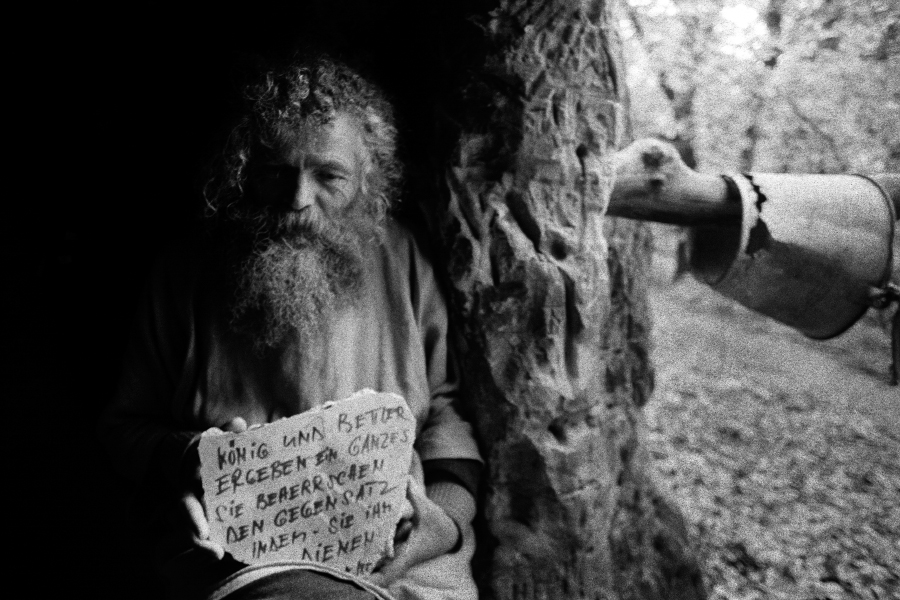 KÖNIG UND BETTLER
ERGEBEN EIN GANZES
SIE BEHERRSCHEN
DEN GEGENSATZ
INDEM SIE IHM
DIENEN